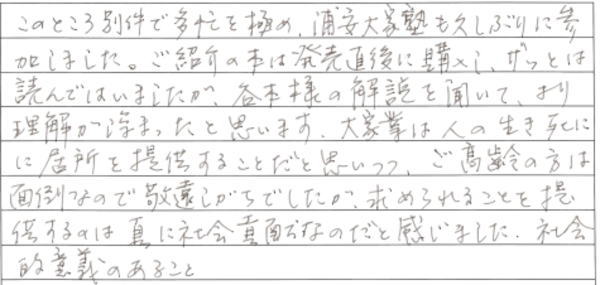 このところ別件で多忙を極め、浦安大家塾も久しぶりに参
加しました。ご紹介の本は発売直後に購入し、ザッとは
読んではいましたが、谷本様の解説を聞いて、より
理解が深まったと思います。大家業は人の生き死に
に居所を提供することだと思いつつ、ご高齢の方は
面倒なので敬遠しがちでしたが、求められることを提
供するのは真に社会貢献なのだと感じました。社会
的意義のあること